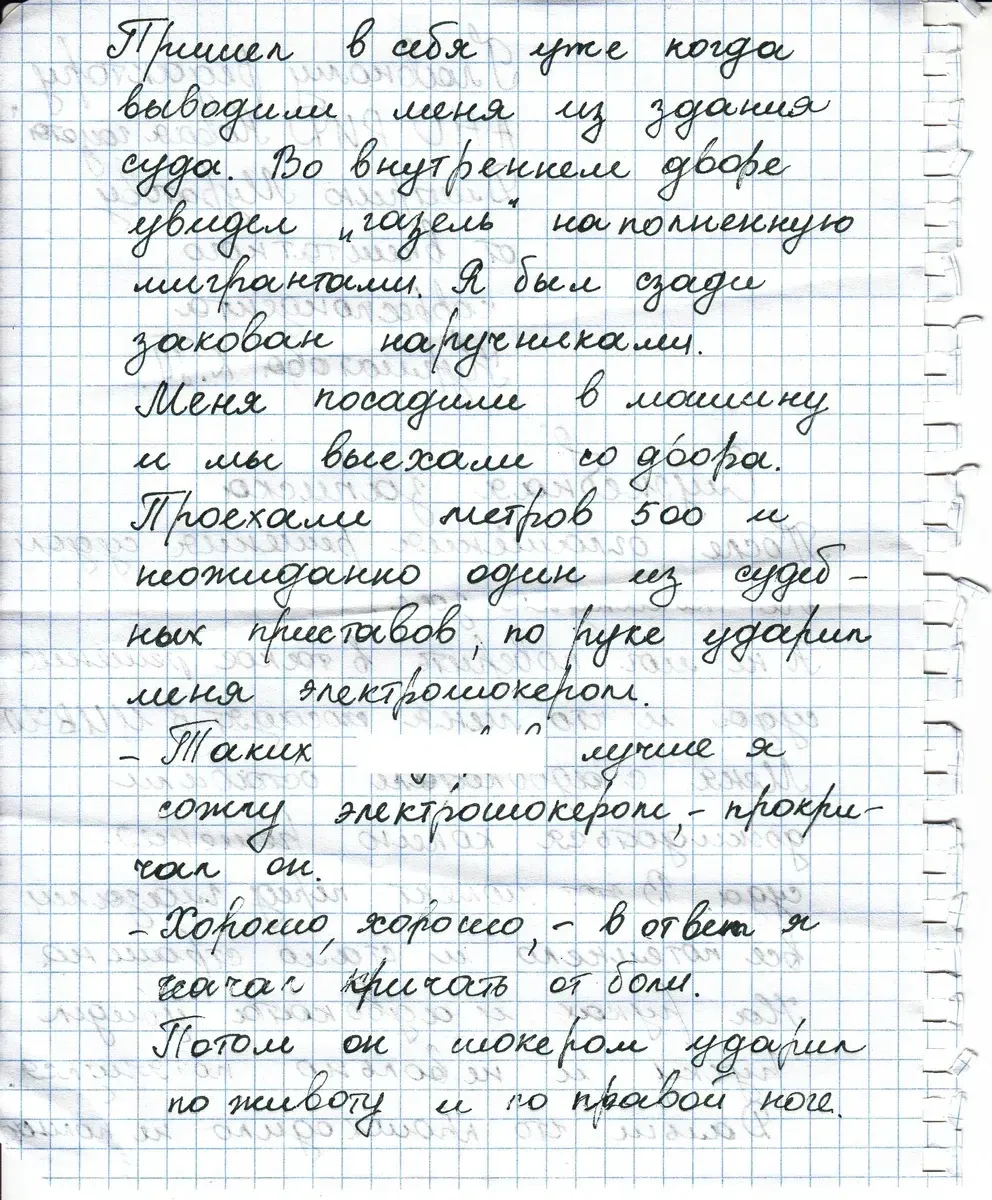 Пришел в себя уже когда
выводили меня из здания
суда. Во внутреннем дворе
увидел „газель“ наполненную
мигрантами. Я был сзади
закован наручниками.
Меня посадили в машину
и мы выехали со двора.
Проехали метров 500 и
неожиданно один из судеб-
ных приставов, по руке ударил
меня электрошокером.
- Таких лучше я
сожгу электрошокером, - прокри-
чал он.
- Хорошо, хорошо, - в ответ я
начал кричать от боли.
Потом он шокером ударил
по животу и по правой ноге.